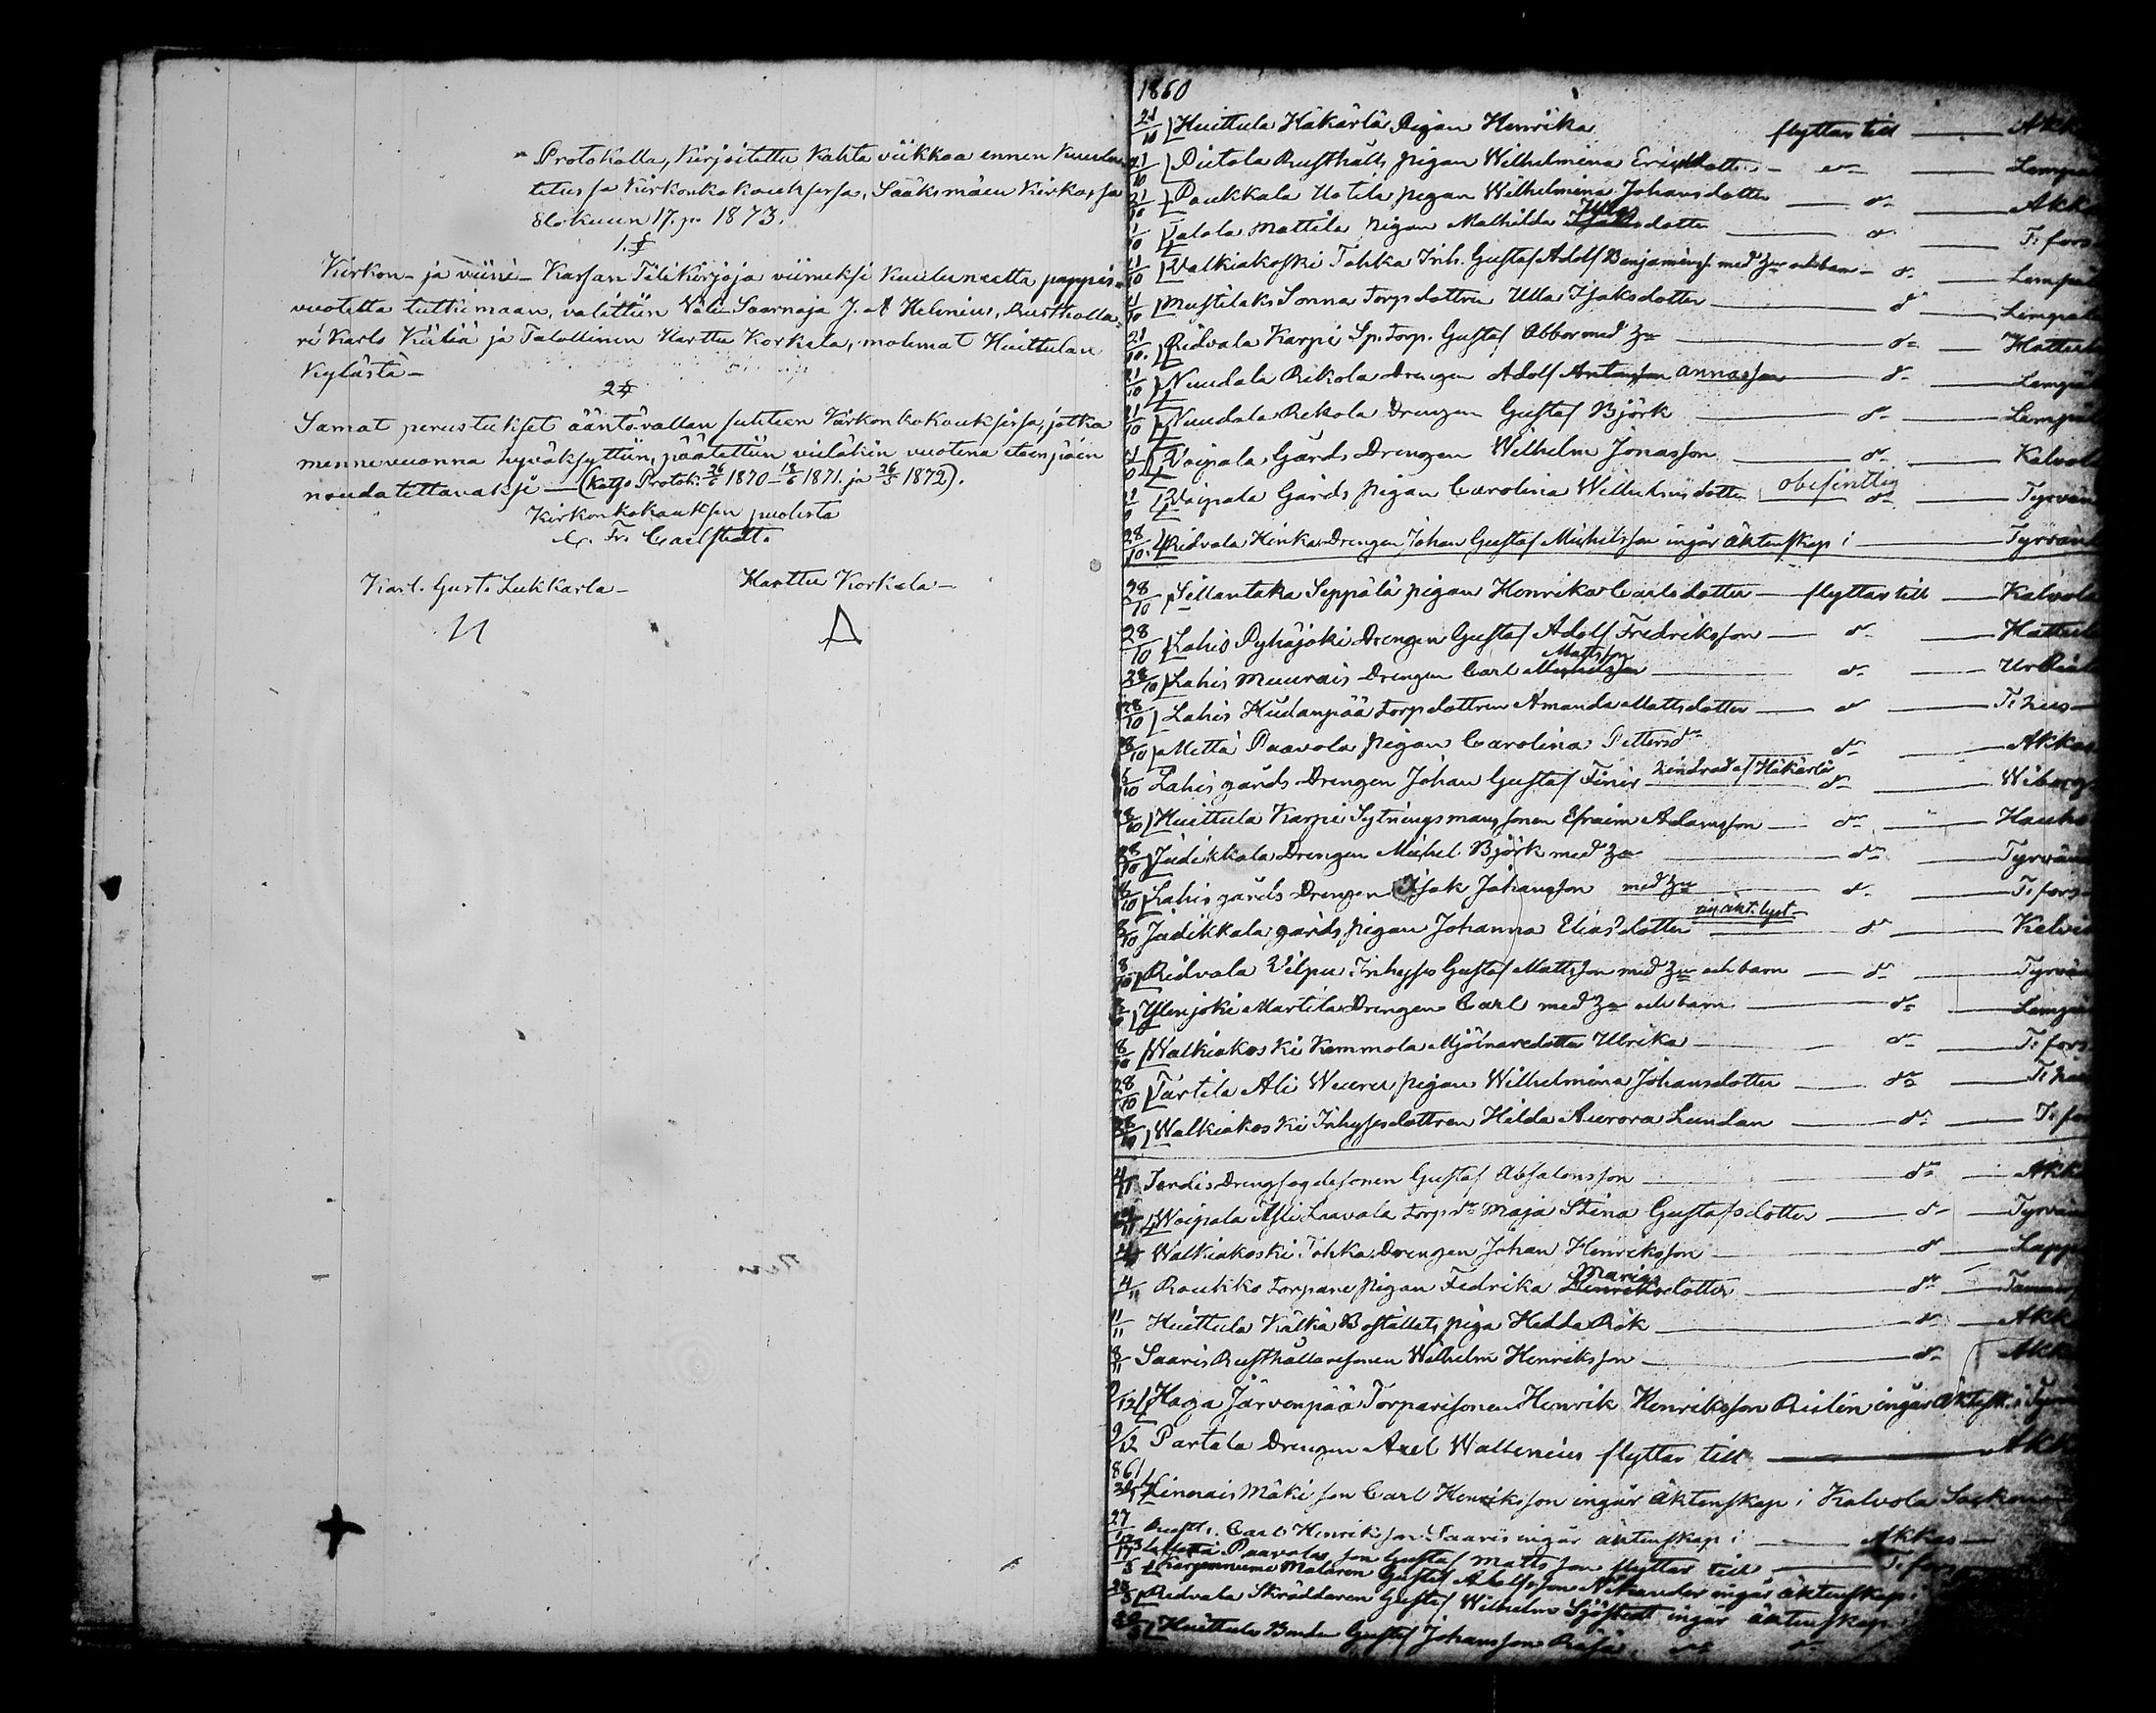 Protokolla, Kirjoitettu Kahta viikkoa ennen Kuulu-
tetussa Kirkonkokouksessa, Sääksmäen Kirkossa
Elokuun 17. p. 1873.
1. §
Kirkon- ja viini- Kassan Tilikirjoja viimeksi kuluneelta pappis-
vuodelta tutkimaan, valittiin Väli-Saarnaja J. A Helenius, Rusthollari
Karlo Kiiliä ja Talollinen Harttu Korkala, molemat Huittulan
Kylästä -
2 §
Samat perustukset ääntövallan suhteen Kirkonkokouksissa, jotka
mennevuonna hyväksyttiin, päätettiin vieläkin vuotena eteenpäin
noudatettavaksi - (Katso Protok: 26/5 1870 - 18/6 1871. ja 26/5 1872).
Kirkonkokouksen puolesta
C. Fr. Carlstedt.
Karl. Gust. Lukkarla - Harttu Korkala -
1860
21/10 Huittula Häkärlä Pigan Henrika flyttar till Akk
21/10 Pietola Rusthålls pigan Wilhelmina Ericsdotter Lempä
21/10 Paukkala Uotila pigan Wilhelmina Johansdotter do Akk
Jutala Mattila Pigan Mathilda dotter do T:fors
21/10 Walkiakoski Tohka Inh. Gustaf Adolf Benjaminss. med hu och barn do Lempä
21/10 Sonna Torpdottren Ulla Isaksdotter do Lempä
21/10 Ridvala Karpi Sp. torp. Gustaf Abbor med hu do Hattul
21/10 Nuudala Rekola Drengen Adolf Annasson do Lempä
21/10 Nuudala Rekola Drengen Gustaf Björk do Lempä
Voipala Gårds Drengen Wilhelm Jonasson do Kalvola
Voipala Gårds Pigan Carolina Wilhelmsdotter obefintlig do Tyrvän
28/10 Ridvala Hinka Drengen Johan Gustaf Michelsson ingår äktenskap i Tyrvän
28/10 Sillantaka Seppälä pigan Henrika Carlsdotter flyttar till Kalvola
28/10 Lahis Pyhäjoki Drengen Gustaf Adolf Fredriksson do Hattul
28/10 Lahis Muurais Drengen Carl Mattsson do Urdia
28/10 Lahis Hiidanpää torpdottren Amanda Mattsdotter do T:hus
28/10 Metta Paavola Pigan Carolina Pettersdr do Akkas
Lahis gårds Drengen Johan Gustaf hindrad af Häkärlä do Wiborg
Huittula Karpi Sytningsmanssonen Efraim Adamsson do Hauho
28/10 Judikkala Drengen Michel Björk med hu do Tyrvän
Lahis gårds Drengen Isak Johansson med hu do T:fors
Judikkala gårds Pigan Johanna Eliasdotter do Kalvo
Ridvala Vilpu Inhyses Gustaf Mattsson med hu och barn do Tyrvän
Ylenjoki Martila Drengen Carl med hu och barn do Lempä
Walkiakoski Kemmola Mjölnaredotter Ulrika do T:fors
28/10 Tartila Ali Wuoru pigan Wilhelmina Johansdotter do T:hu
28/10 Walkiakoski Inhysesdottren Hilda Aurora Lundan do T:fo
4/11 Jordis Drengfogdesonen Gustaf Absalonsson do Akk
4/11 Woipala Laavola torpdr Maja Stina Gustafsdotter do Tyrvän
4/11 Walkiakoski Tohka Drengen Johan Henriksson do Lapp
4/11 Roukko torpare pigan Fredrika Mariasdotter do Tamm
11/11 Huittula Kälkä Boställets piga Hedda Rök do Akk
8/11 Saaris Rusthållaresonen Wilhelm Henriksson do Akk
9/12 Haga Järvenpää Torparesonen Henrik Henriksson Ristin ingår äktesk. i Tyrv
9/12 Partala Drengen Axel Wallenius flyttar till Akk
1861
Linnais Mäki son Carl Henriksson ingår äktenskap i Kalvola Socken
27 Rustl. Carl Henriksson Saaris ingår äktenskap i Akkas
Metta Paavola son Gustaf Mattsson flyttar till T:fors
Karjenniemi Målaren Gustaf Adolfsson Nikander ingår äktenskap i
Ridvala Skräddaren Gustaf Wilhelm Sjöstedt ingår äktenskap
Huittula Bonden Gustaf Johansson Räfsä do do